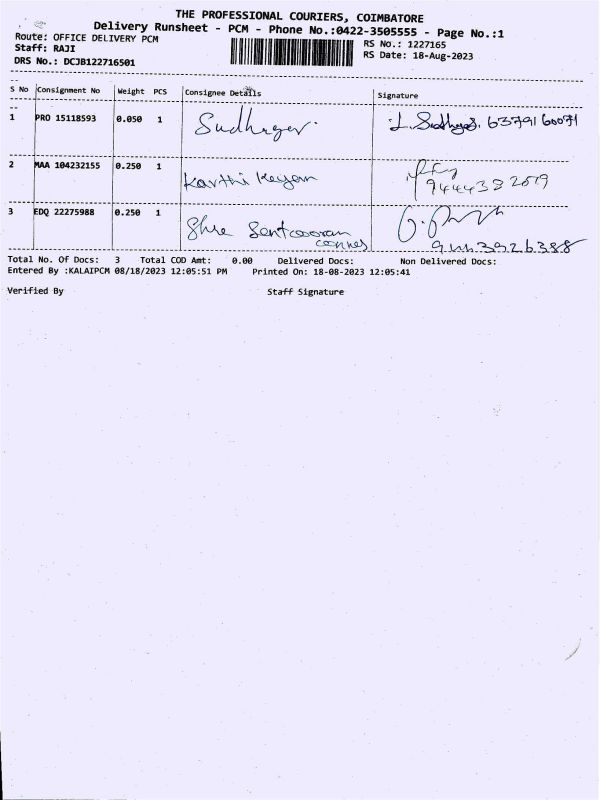 THE PROFESSIONAL COURIERS, COIMBATORE
Delivery Runsheet - PCM - Phone No.:0422-3505555 - Page No.:1
Route: OFFICE DELIVERY PCM
RS No.: 1227165
Staff: RAJI
RS Date: 18-Aug-2023
DRS No.: DCJB122716501
S No Consignment No Weight PCS Consignee Details Signature
1 PRO 15118593 0.050 1 Sudhager. L. 6379160071
2 MAA 104232155 0.250 1 Karthi Keyan
9444382079
3 EDQ 22275988 0.250 1 Shre
Total No. Of Docs: 3 Total COD Amt: 0.00 Delivered Docs: Non Delivered Docs:
Entered By :KALAIPCM 08/18/2023 12:05:51 PM Printed On: 18-08-2023 12:05:41
Verified By Staff Signature